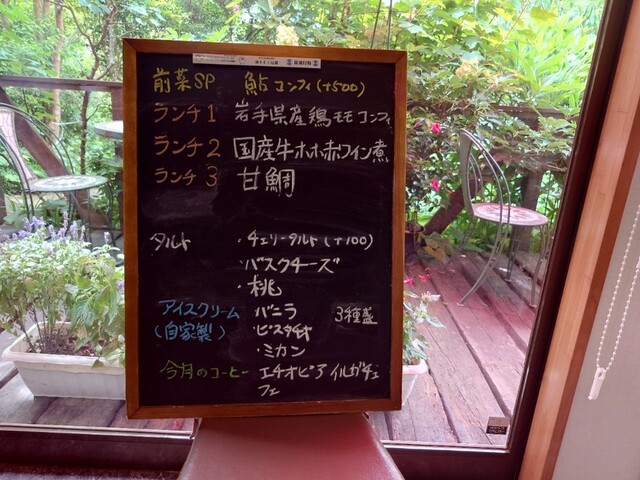 前菜SP 鮎コンフィ(+500)
ランチ1 岩手県産鶏モモコンフィ
ランチ2 国産牛ホホ赤ワイン煮
ランチ3 甘鯛
タルト ・チェリータルト(+100)
・バスクチーズ
・桃
アイスクリーム バニラ 3種盛
(自家製) ・ピスタチオ
・ミカン
今月のコーヒー エチオピア イルガチェ
フェ